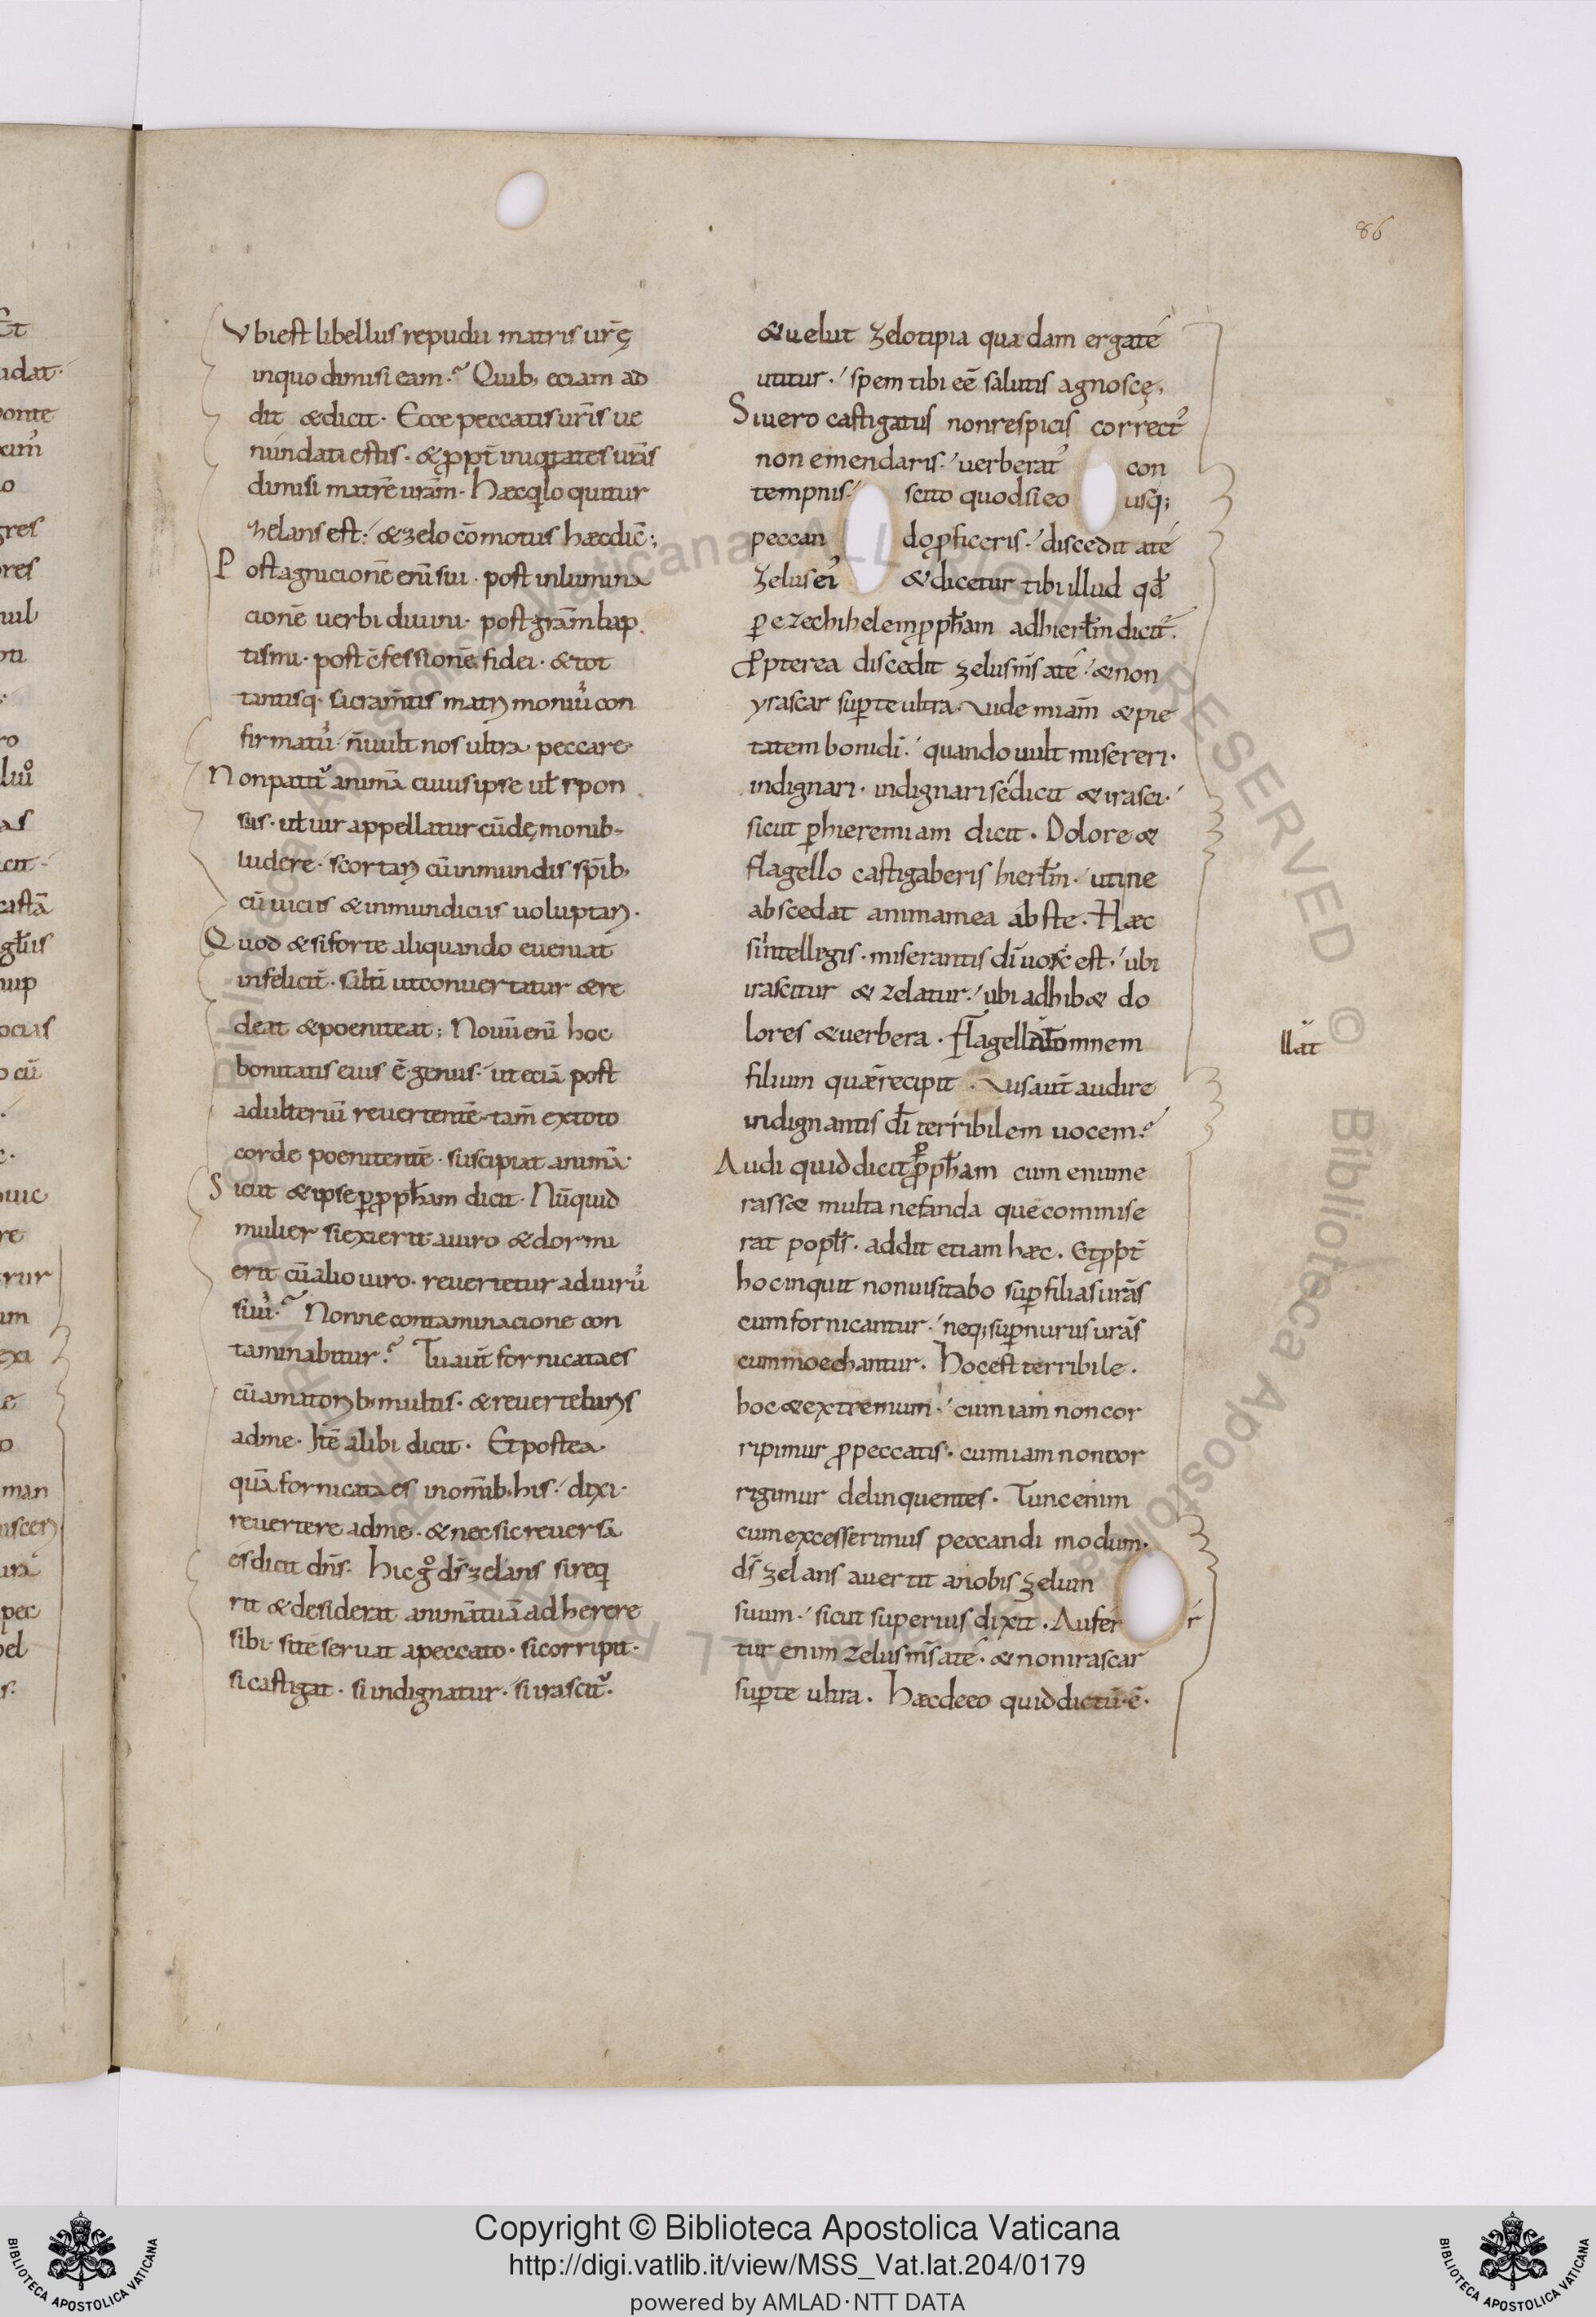 86
Ubi est libellus repudii matris urę̄
in quo dimisi eam? Quib; eciam ad
dit & dicit. Ecce peccatis uris̄ ue
nundati estis. & ꝓpt̄ iniquitates urās
dimisi matrē urām. Hæc q̇ loquitur
zelans est. & zelo cōmotus hæc dic̄;
Post agnicionē enī sui. post inlumina
cionē uerbi diuini. post grām bap
tismi. post c̄fessionē fidei. & tot
tantisq. sacram̄tis matrimoniū con
firmatū. n̄ uult nos ultra peccare.
Non patit᷑ animā cuius ipse ut̄ spon
sus. ut̄ uir appellatur cū dęmonib;
ludere. scortari cū inmundis sp̄ib;
cū uiciis & inmundiciis uoluptari.
Quod & si forte aliquando eueniat
infelicit̄. saltī ut conuertatur & re
deat & poeniteat; Nouū enī hoc
bonitatis eius ē genus. ut eciā post
adulteriū reuertentē. tam̄ ex toto
corde poenitentē. suscipiat animā.
Sicut & ipse ꝑ ꝓph̄am dicit. Nūquid
mulier si exierit a uiro & dormi
erit cū alio uiro. reuertetur ad uirū
suū? Nonne contaminacione con
taminabitur? Tu aut̄ fornicata es
cū amatorib; multis. & reuertebaris
ad me. Itē alibi dicit. Et postea
quā fornicata es in om̄ib; his. dixi.
reuertere ad me. & nec sic reuersa
es dicit dn̄s. Hic g̊ ds̄ zelans si req
rit & desiderat animā tuā adherere
sibi. si te seruat a peccato. si corripit.
si castigat. si indignatur. si irascit᷑.
& uelut zelotipia quædam erga te
utitur. spem tibi eē salutis agnoscę.
Si uero castigatus non respicis correct᷑
non emendaris. uerberat᷑ con
tempnis. scito quod si eo usq;
peccan do ꝓficeris. discedit a te
zelus ei᷑ & dicetur tibi illud qđ
ꝑ ezechihelem ꝓph̄am ad hierłm dicit᷑.
Ꝓpterea discedit zelus ms̄ a te. & non
yrascar suꝑ te ultra. Uide miām & pie
tatem boni dī. quando uult misereri.
indignari. indignari se dicit & irasci.
sicut ꝑ hieremiam dicit. Dolore &
flagello castigaberis hierłm. uti ne
abscedat anima mea abs te. Hæc
si intellegis. miserantis dī uox est. ubi
irascitur & zelatur. ubi adhib& do
lores & uerbera. Flagellat omnem
llat
filium quē recipit. Uis aut̄ audire
indignantis dī terribilem uocem?
Audi quid dicit ꝑ ꝓph̄am cum enume
rass& multa nefanda que commise
rat popls̄. addit etiam hæc. Et ꝓpt̄
hoc inquit non uisitabo suꝑ filias urās
cum fornicantur. neq; suꝑ nurus urās
cum moechantur. Hoc est terribile.
hoc & extremum. cum iam non cor
ripimur ꝓ peccatis. cum iam non cor
rigimur delinquentes. Tunc enim
cum excesserimus peccandi modum.
ds̄ zelans auertit a nobis zelum
suum. sicut superius dixit. Aufer
tur enim zelus ms̄ a te. & non irascar
suꝑ te ultra. Hæc de eo quid dictū ē.
Copyright © Biblioteca Apostolica Vaticana
http://digi.vatlib.it/view/MSS_Vat.lat.204/0179
powered by AMLAD·NTT DATA